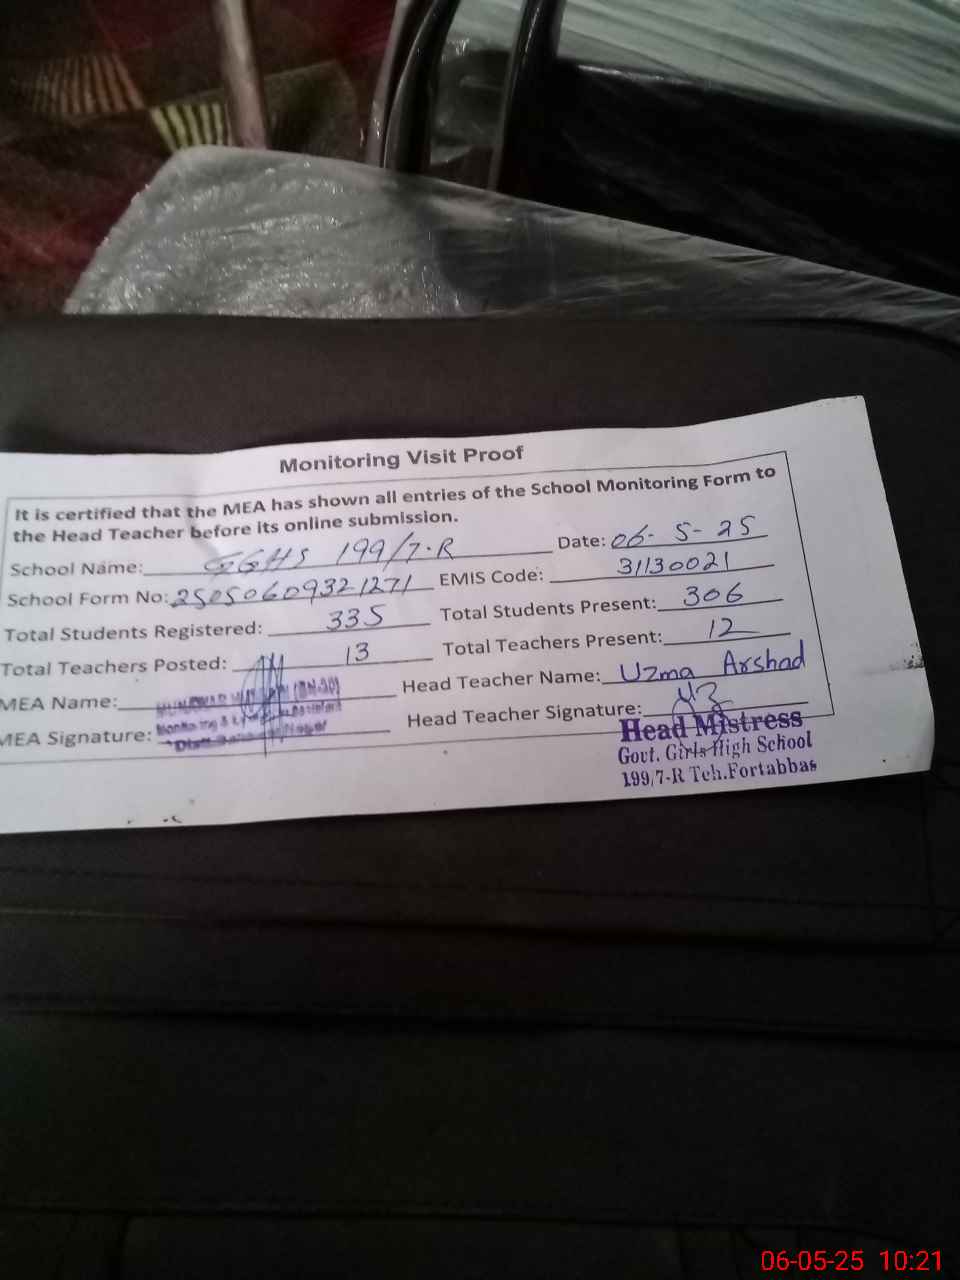 Monitoring Visit Proof
It is certified that the MEA has shown all entries of the School Monitoring Form to
the Head Teacher before its online submission.
School Name: GGHS 199/7-R Date: 06-5-25
School Form No: 25050609321271 EMIS Code: 31130021
Total Students Registered: 335 Total Students Present: 306
Total Teachers Posted: 13 Total Teachers Present: 12
MEA Name: Head Teacher Name: Uzma Arshad
MEA Signature: Head Teacher Signature:
Head Mistress
Govt. Girls High School
199/7-R Teh.Fortabbas
06-05-25 10:21